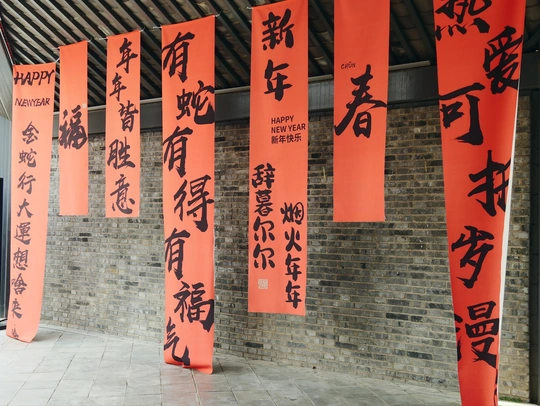 HAPPY
NEWYEAR
金蛇行大運想啥来
福
年年皆胜意
有蛇有得有福气
新年
HAPPY
NEW YEAR
新年快乐
辞暮尔尔
烟火年年
CHŪN
春
热爱可抵岁漫